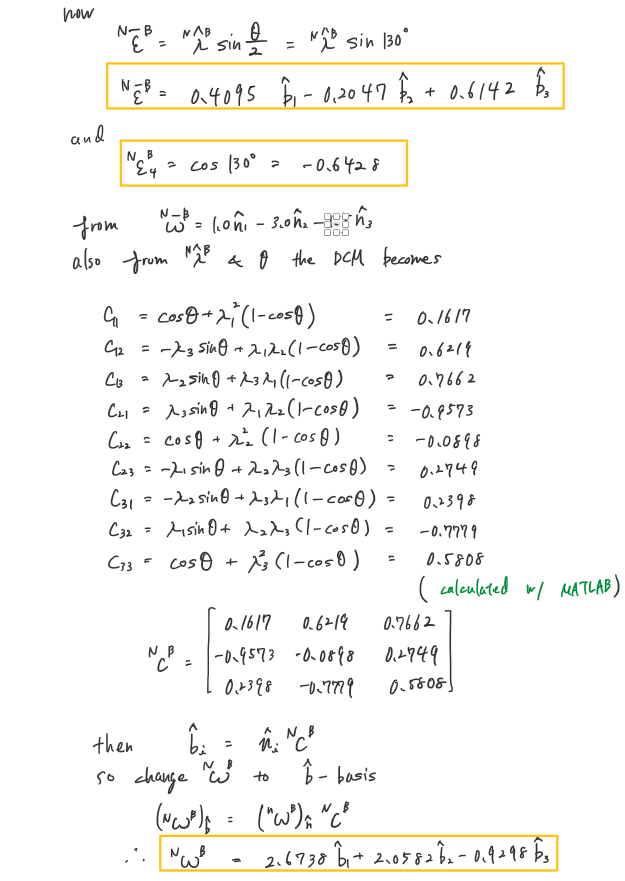 now
ᴺε̄ᴮ = ᴺλ̂ᴮ sin θ/2 = ᴺλ̂ᴮ sin 130°
ᴺε̄ᴮ = 0.4095 b̂₁ - 0.2047 b̂₂ + 0.6142 b̂₃
and
ᴺε₄ᴮ = cos 130° = -0.6428
from ᴺω̄ᴮ = 1.0 n̂₁ - 3.0 n̂₂ - n̂₃
also from ᴺλ̂ᴮ & θ the DCM becomes
C₁₁ = cosθ + λ₁²(1-cosθ) = 0.1617
C₁₂ = -λ₃ sinθ + λ₁λ₂(1-cosθ) = 0.6219
C₁₃ = λ₂ sinθ + λ₃λ₁(1-cosθ) = 0.7662
C₂₁ = λ₃ sinθ + λ₁λ₂(1-cosθ) = -0.9573
C₂₂ = cosθ + λ₂²(1-cosθ) = -0.0898
C₂₃ = -λ₁ sinθ + λ₂λ₃(1-cosθ) = 0.2749
C₃₁ = -λ₂ sinθ + λ₃λ₁(1-cosθ) = 0.2398
C₃₂ = λ₁ sinθ + λ₂λ₃(1-cosθ) = -0.7779
C₃₃ = cosθ + λ₃²(1-cosθ) = 0.5808
(calculated w/ MATLAB)
0.1617 0.6219 0.7662
ᴺCᴮ = -0.9573 -0.0898 0.2749
0.2398 -0.7779 0.5808
then b̂ᵢ = n̂ᵢ ᴺCᴮ
so change ᴺωᴮ to b̂-basis
(ᴺωᴮ)b̂ = (ⁿωᴮ)n̂ ᴺCᴮ
∴ ᴺωᴮ = 2.6738 b̂₁ + 2.0582 b̂₂ - 0.9298 b̂₃